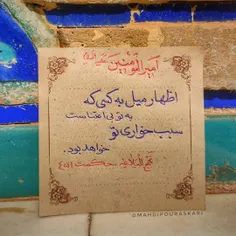 امیرالمؤمنین علیه‌السلام
اظهار میل به کسی که
به تو بی اعتناست
سبب خواری تو
خواهد بود.
نهج البلاغه حکمت ۴۵۱
@MAHDIPOURASKARI